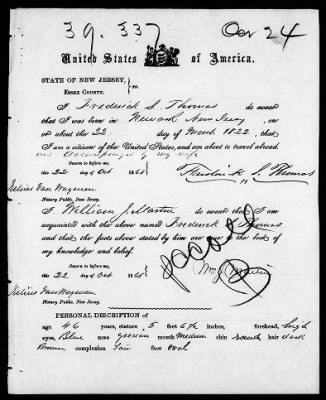 39.337
Oct 24
United States of America.
STATE OF NEW JERSEY,
ESSEX COUNTY. ss.
I Frederick S. Thomas do swear
that I was born in Newark New Jersey on
or about the 22 day of March 1822, that
I am a citizen of the United States, and am about to travel abroad
accompanied by my wife
Sworn to before me,
this 22 day of Oct 1868
Frederick S. Thomas
Notary Public, New Jersey.
I William J. Martin do swear that I am
acquainted with the above named Frederick S. Thomas
and that the facts above stated by him are true to the best of
my knowledge and belief.
Sworn to before me,
this 22 day of Oct 1868
Wm J. Martin
Notary Public, New Jersey.
PERSONAL DESCRIPTION of
age 46 years, stature 5 feet 6½ inches, forehead, high
eyes, Blue nose grecian mouth Medium chin round hair dark
Brown complexion fair face oval